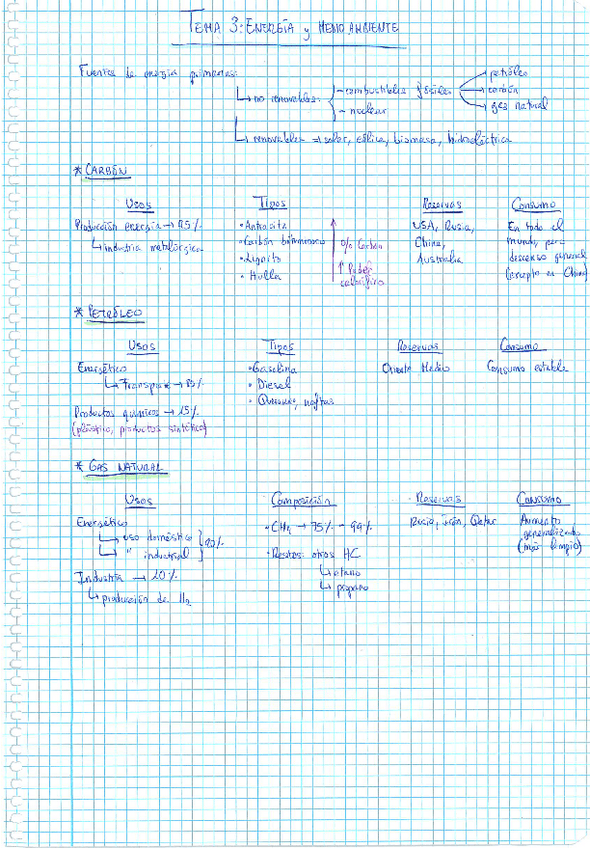 TEMA 3: ENERGÍA y MEDIO AMBIENTE
Fuentes de energía primarias:
no renovables: - combustibles fósiles petróleo
carbón
gas natural
- nuclear
renovables → solar, eólica, biomasa, hidroeléctrica
* CARBÓN
Usos Tipos Reservas Consumo
Producción energía → 95%
industria metalúrgica
• Antracita
• Carbón bituminoso
• Lignito
• Hulla
% Carbón
↑ Poder
calorífico
USA, Rusia,
China,
Australia
En todo el
mundo, pero
descenso general
(excepto en China)
* PETRÓLEO
Usos Tipos Reservas Consumo
Energético
Transporte → 85%
Productos químicos → 15%
(plástico, productos sintéticos)
• Gasolina
• Diesel
• naftas
Oriente Medio
Consumo estable
* GAS NATURAL
Usos Composición Reservas Consumo
Energético
uso doméstico
" industrial
Industria → 20%
producción de H₂
• CH₄ → 75% - 99%
• Restos: otros HC
etano
propano
Rusia, Irán, Qatar
Aumento
generalizado
(más limpio)